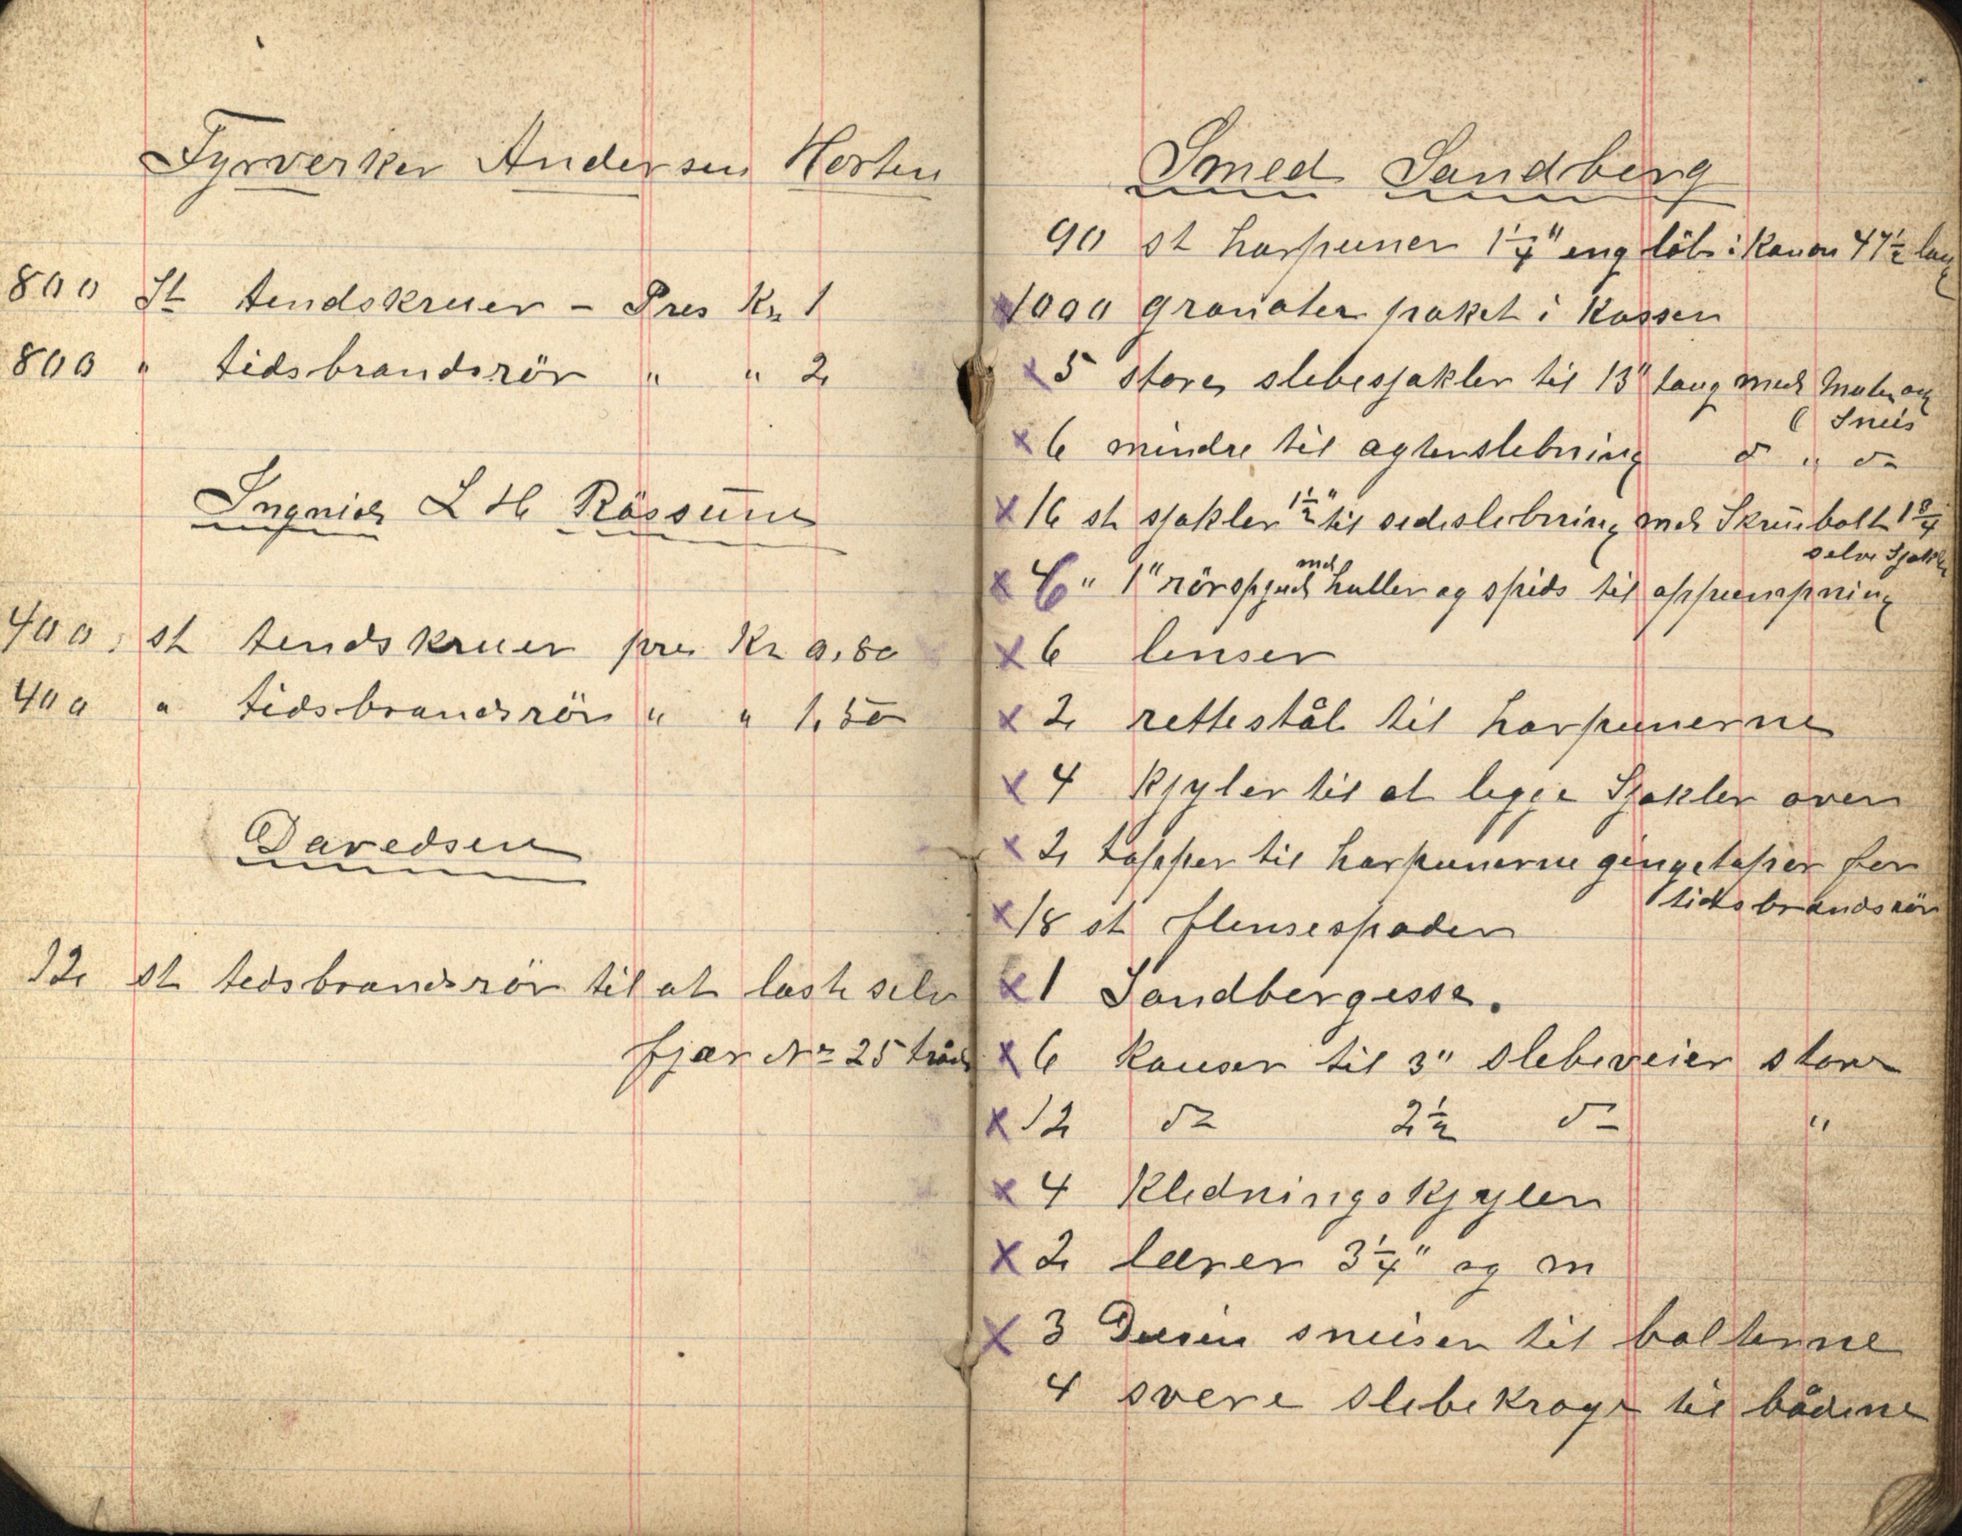 Fyrverker Andersen Horten
800 St tendskruer – Pres Kr 1
800 " tidsbrandsrör " " 2
Ingniør L H Rössum
400, st tendskruer pres Kr 0,80
400 " tidsbrandsrör " " 1,50
Davedsen
12 st tedsbrandsrör til at laste selv
fjær Nr 25 tråd
Smed Sandberg
90 st harpuner 1 1/4" eng löb i Kanon 47 1/2 lang
x 1000 granater paket i Kassen
x 5 store slebesjakler til 13" taug med Muter og
Sneis
x 6 mindre til agterslebning do " do
x 16 st sjakler 1 1/2" til sideslebning med Skruebolt 1 3/4
selve Sjakle
x 6 " 1" rörspyd med huller og spids til oppumpning
x 6 lenser
x 2 rettestål til harpunerne
x 4 Kjyler til at legge Sjakler over
x 2 tapper til harpunerne gingetaper for
tidsbrandsrör
x 18 st flensespader
x 1 Sandbergesse.
x 6 Kauser til 3" slebeveier store
x 12 do 2 1/2 do "
x 4 Kledningskjyler
x 2 lærer 3 1/4" og m
x 3 Dusin sneiser til bolterne
4 svere slebekroge til bådene